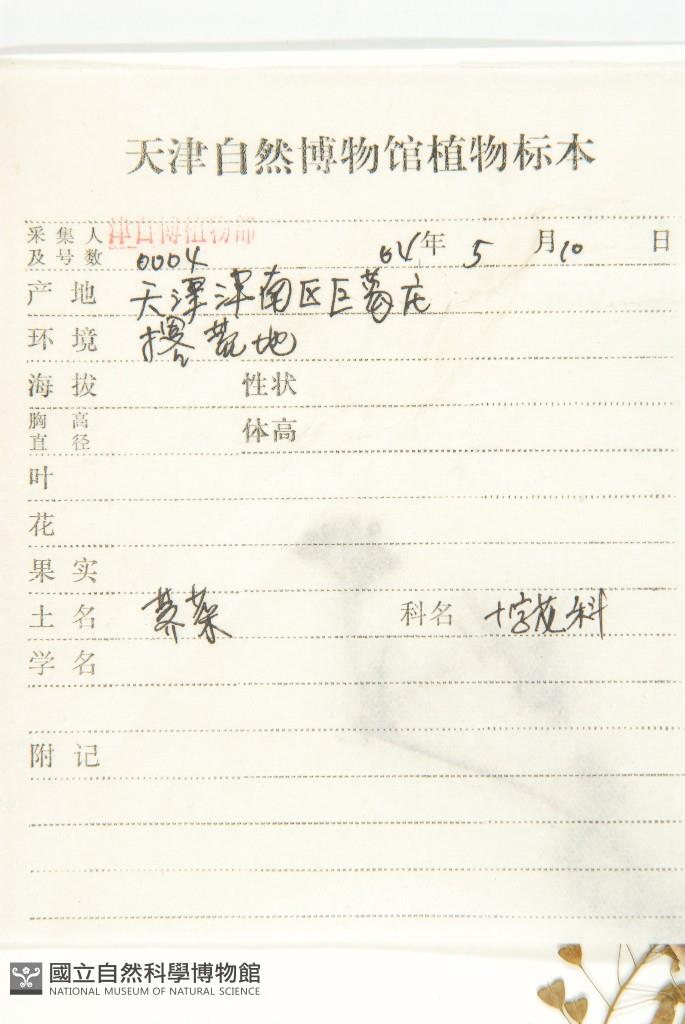 天津自然博物馆植物标本
采集人 津自博植物部
及号数 0004 04年5月10日
产地 天津津南区巨葛庄
环境 撂荒地
海拔 性状
胸高
直径 体高
叶
花
果实
土名 荠菜 科名 十字花科
学名
附记
國立自然科學博物館
NATIONAL MUSEUM OF NATURAL SCIENCE